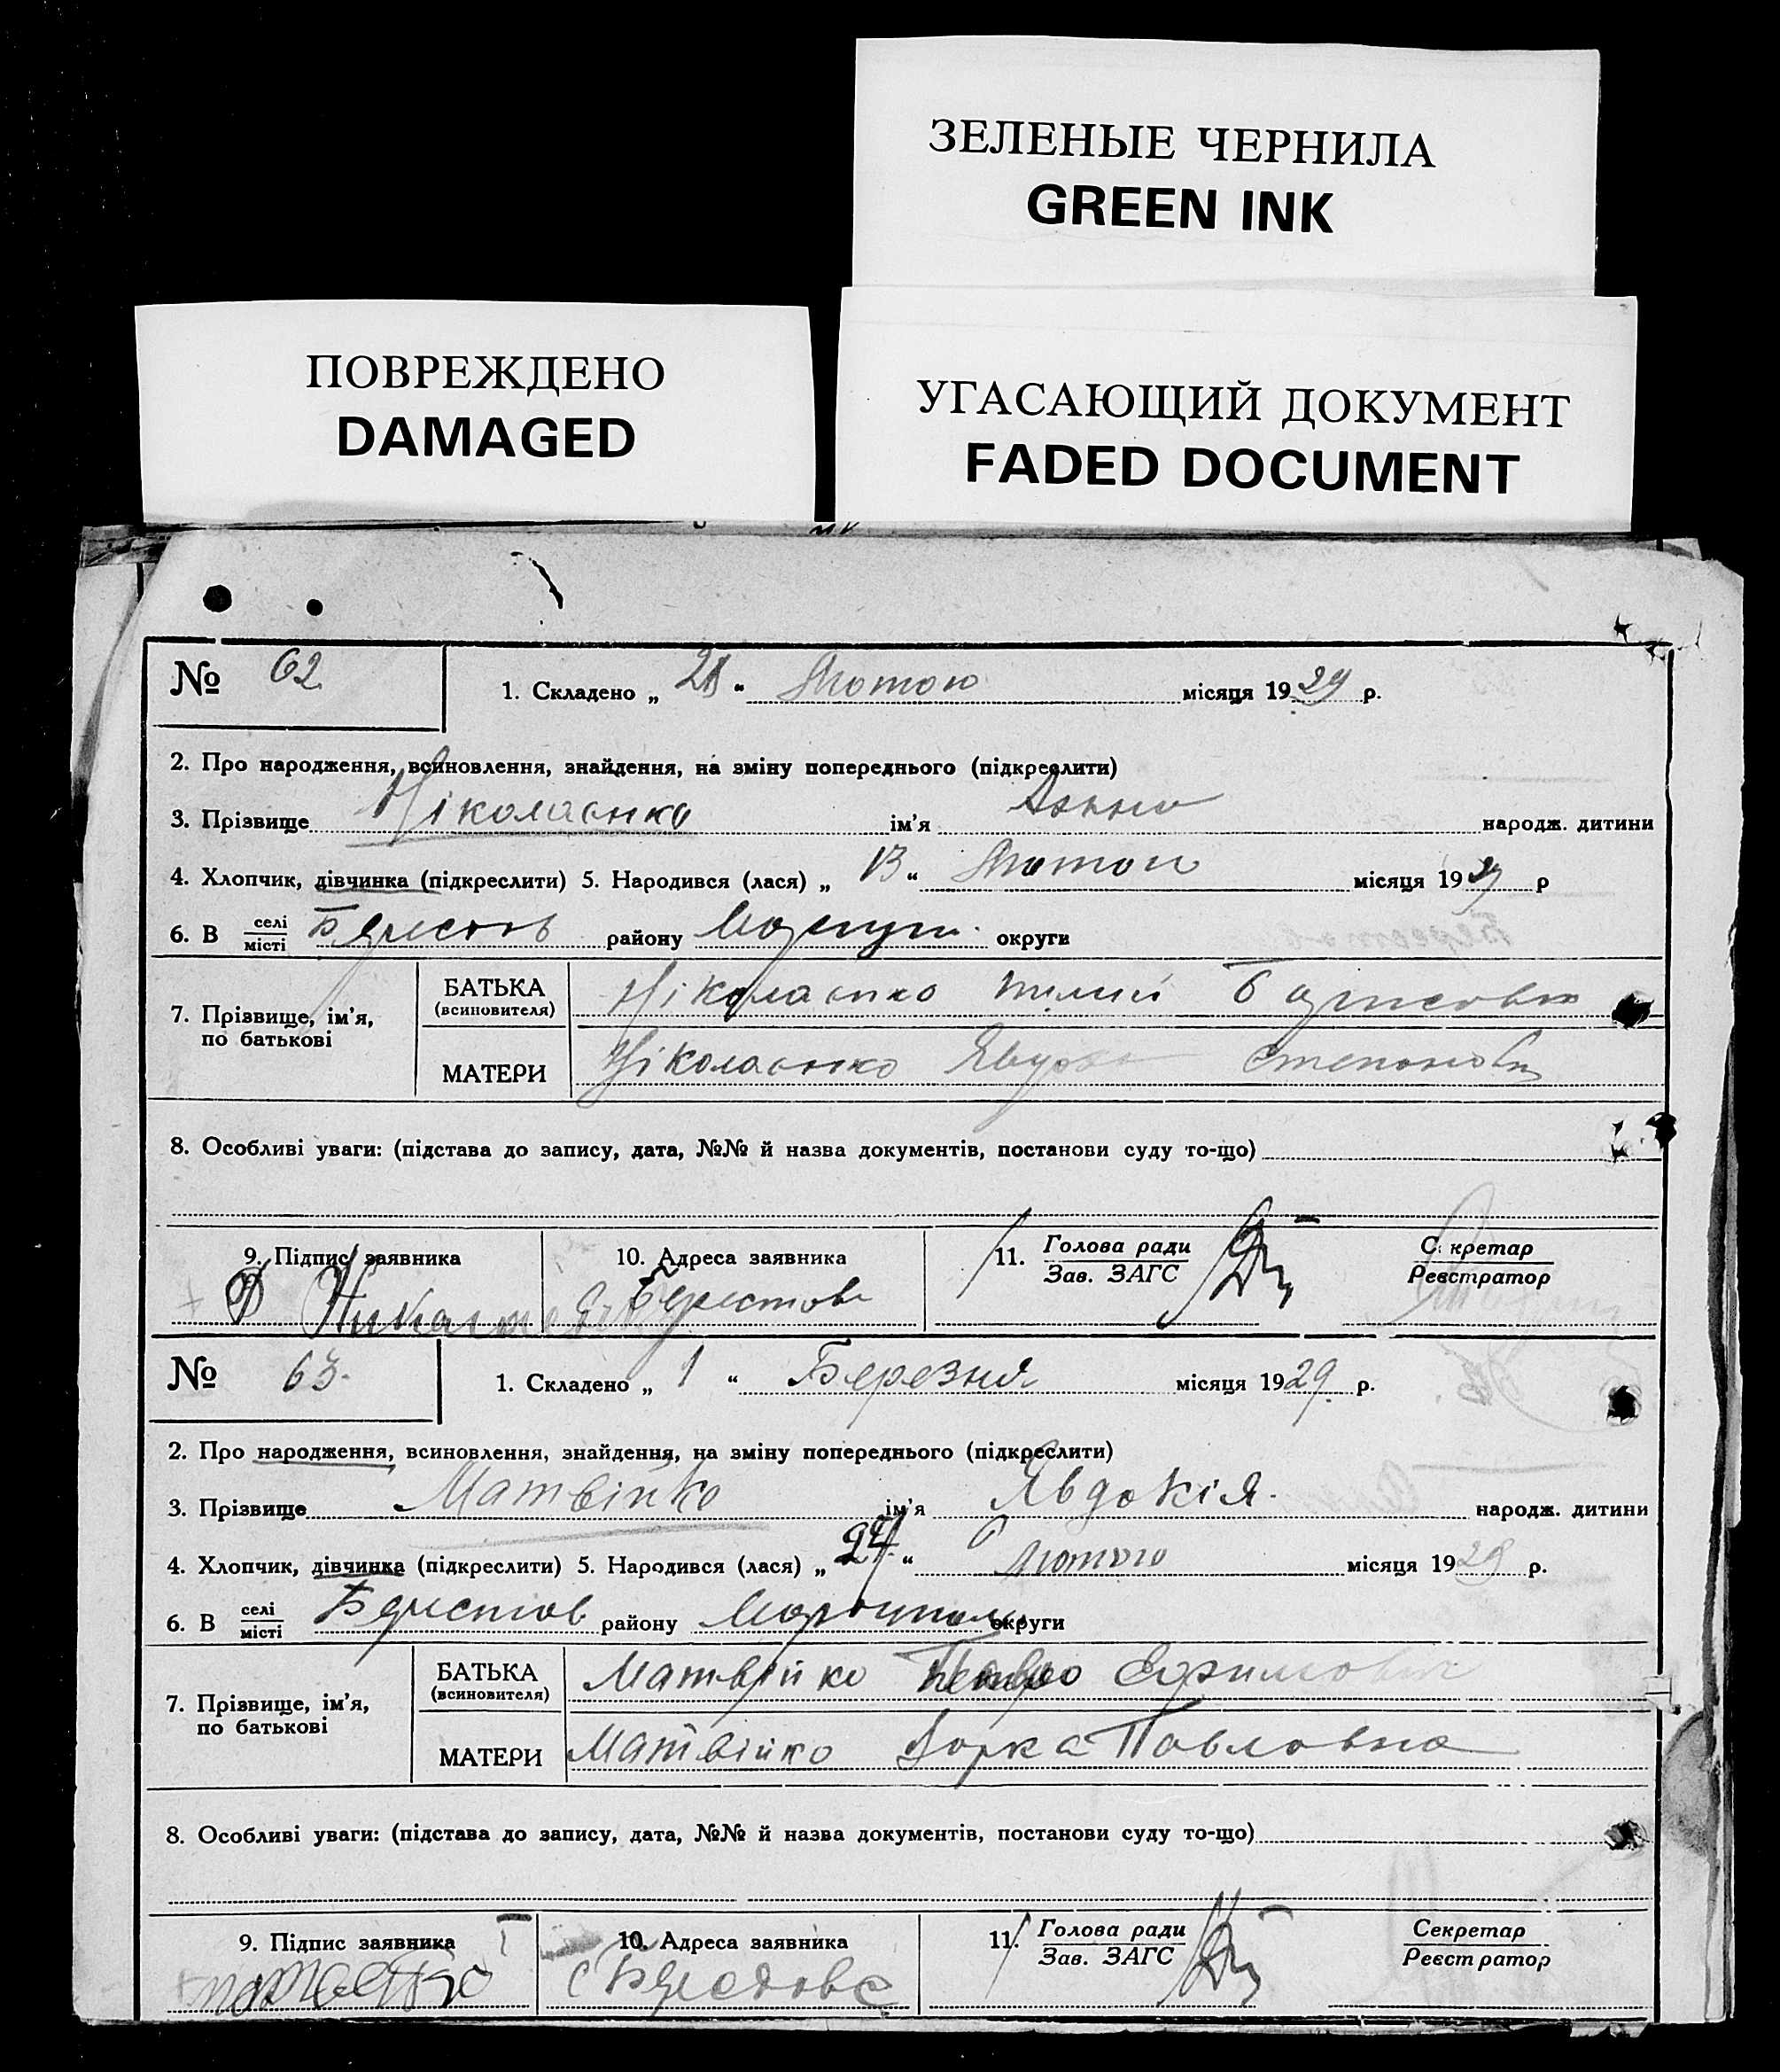 ЗЕЛЕНЫЕ ЧЕРНИЛА
GREEN INK
ПОВРЕЖДЕНО
DAMAGED
УГАСАЮЩИЙ ДОКУМЕНТ
FADED DOCUMENT
№ 62 1. Складено „ “ Лютого місяця 1929 р.
2. Про народження, всиновлення, знайдення, на зміну попереднього (підкреслити)
3. Прізвище Ніколаєнко ім'я народж. дитини
4. Хлопчик, дівчинка (підкреслити) 5. Народився (лася) „ 13 “ Лютого місяця 1929 р
6. В селі/місті Берестов району округи
7. Прізвище, ім'я, по батькові
БАТЬКА (всиновителя) Ніколаєнко
МАТЕРИ Ніколаєнко Степановна
8. Особливі уваги: (підстава до запису, дата, №№ й назва документів, постанови суду то-що)
9. Підпис заявника 10. Адреса заявника 11. Голова ради/Зав. ЗАГС Секретар/Реєстратор
Берестове
№ 63. 1. Складено „ 1 “ Березня місяця 1929 р.
2. Про народження, всиновлення, знайдення, на зміну попереднього (підкреслити)
3. Прізвище Матвійко ім'я Явдокія народж. дитини
4. Хлопчик, дівчинка (підкреслити) 5. Народився (лася) „ “ лютого місяця 1929 р.
6. В селі/місті Берестов району округи
7. Прізвище, ім'я, по батькові
БАТЬКА (всиновителя) Матвійко
МАТЕРИ Матвійко Павловна
8. Особливі уваги: (підстава до запису, дата, №№ й назва документів, постанови суду то-що)
9. Підпис заявника 10. Адреса заявника 11. Голова ради/Зав. ЗАГС Секретар/Реєстратор
с Берестове